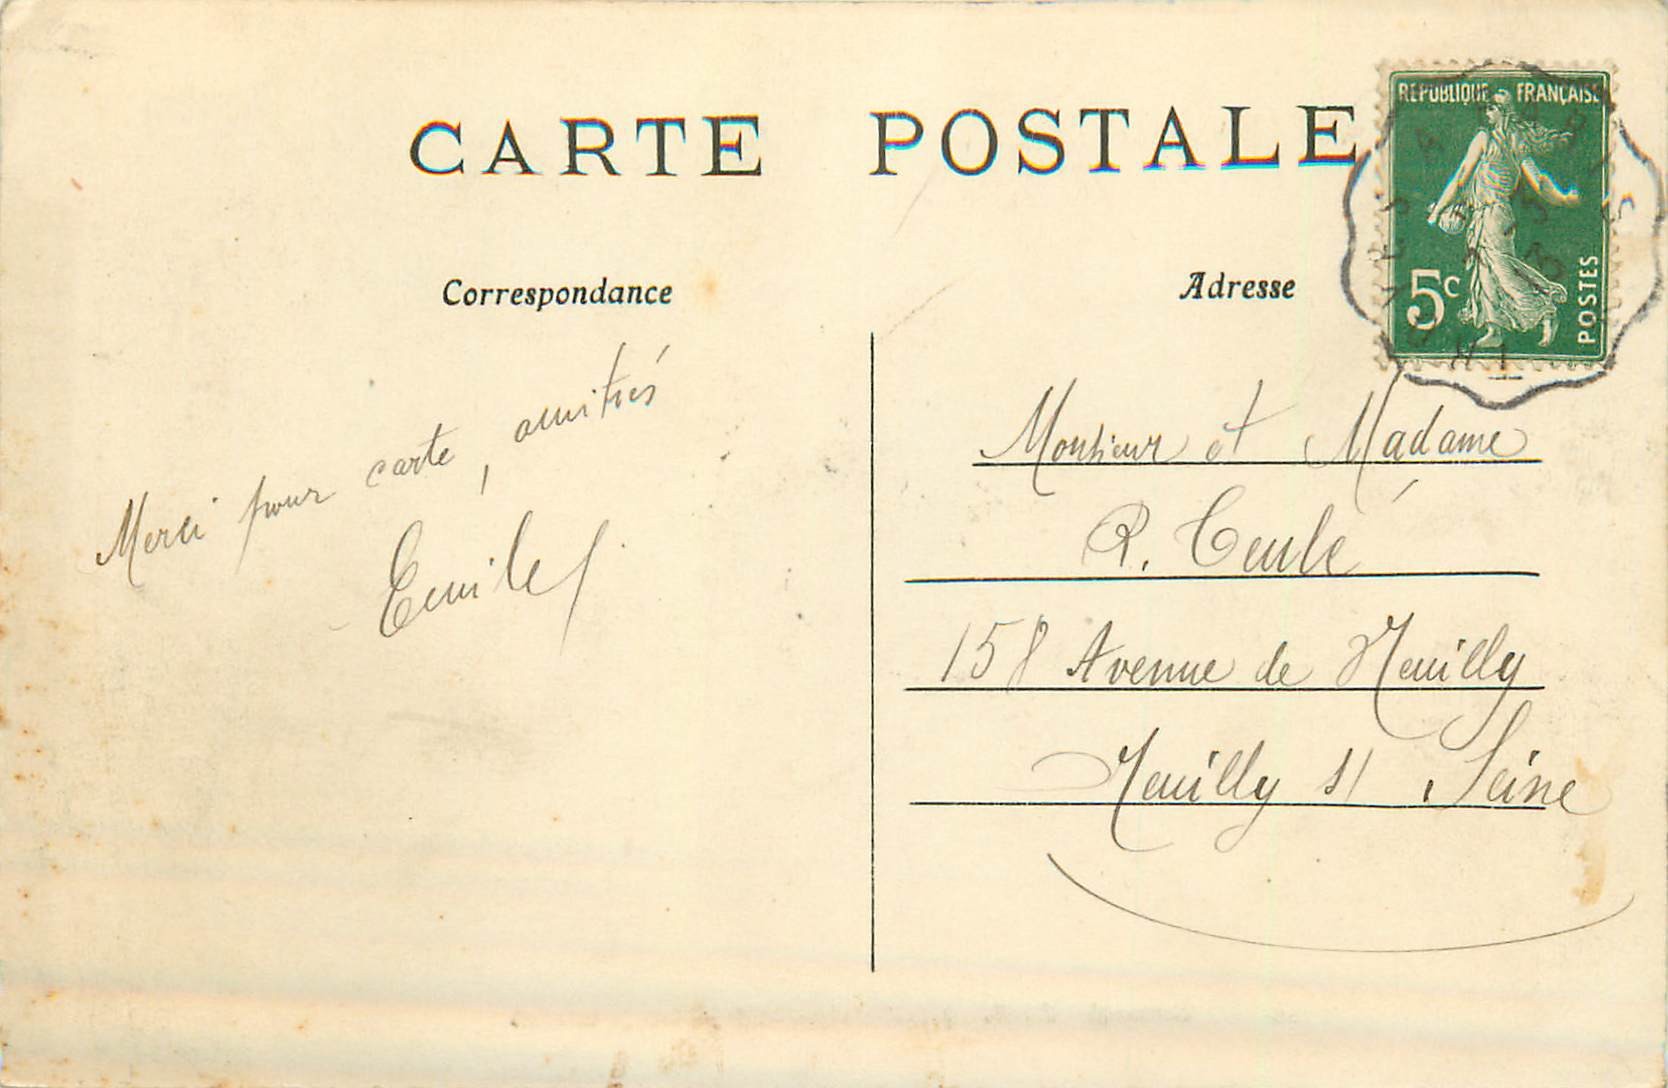 CARTE POSTALE
Correspondance
Adresse
REPUBLIQUE FRANÇAISE
5c
POSTES
Merci pour carte, amitiés
Emile
Monsieur et Madame
R. Teulé
158 Avenue de Neuilly
Neuilly s/ Seine